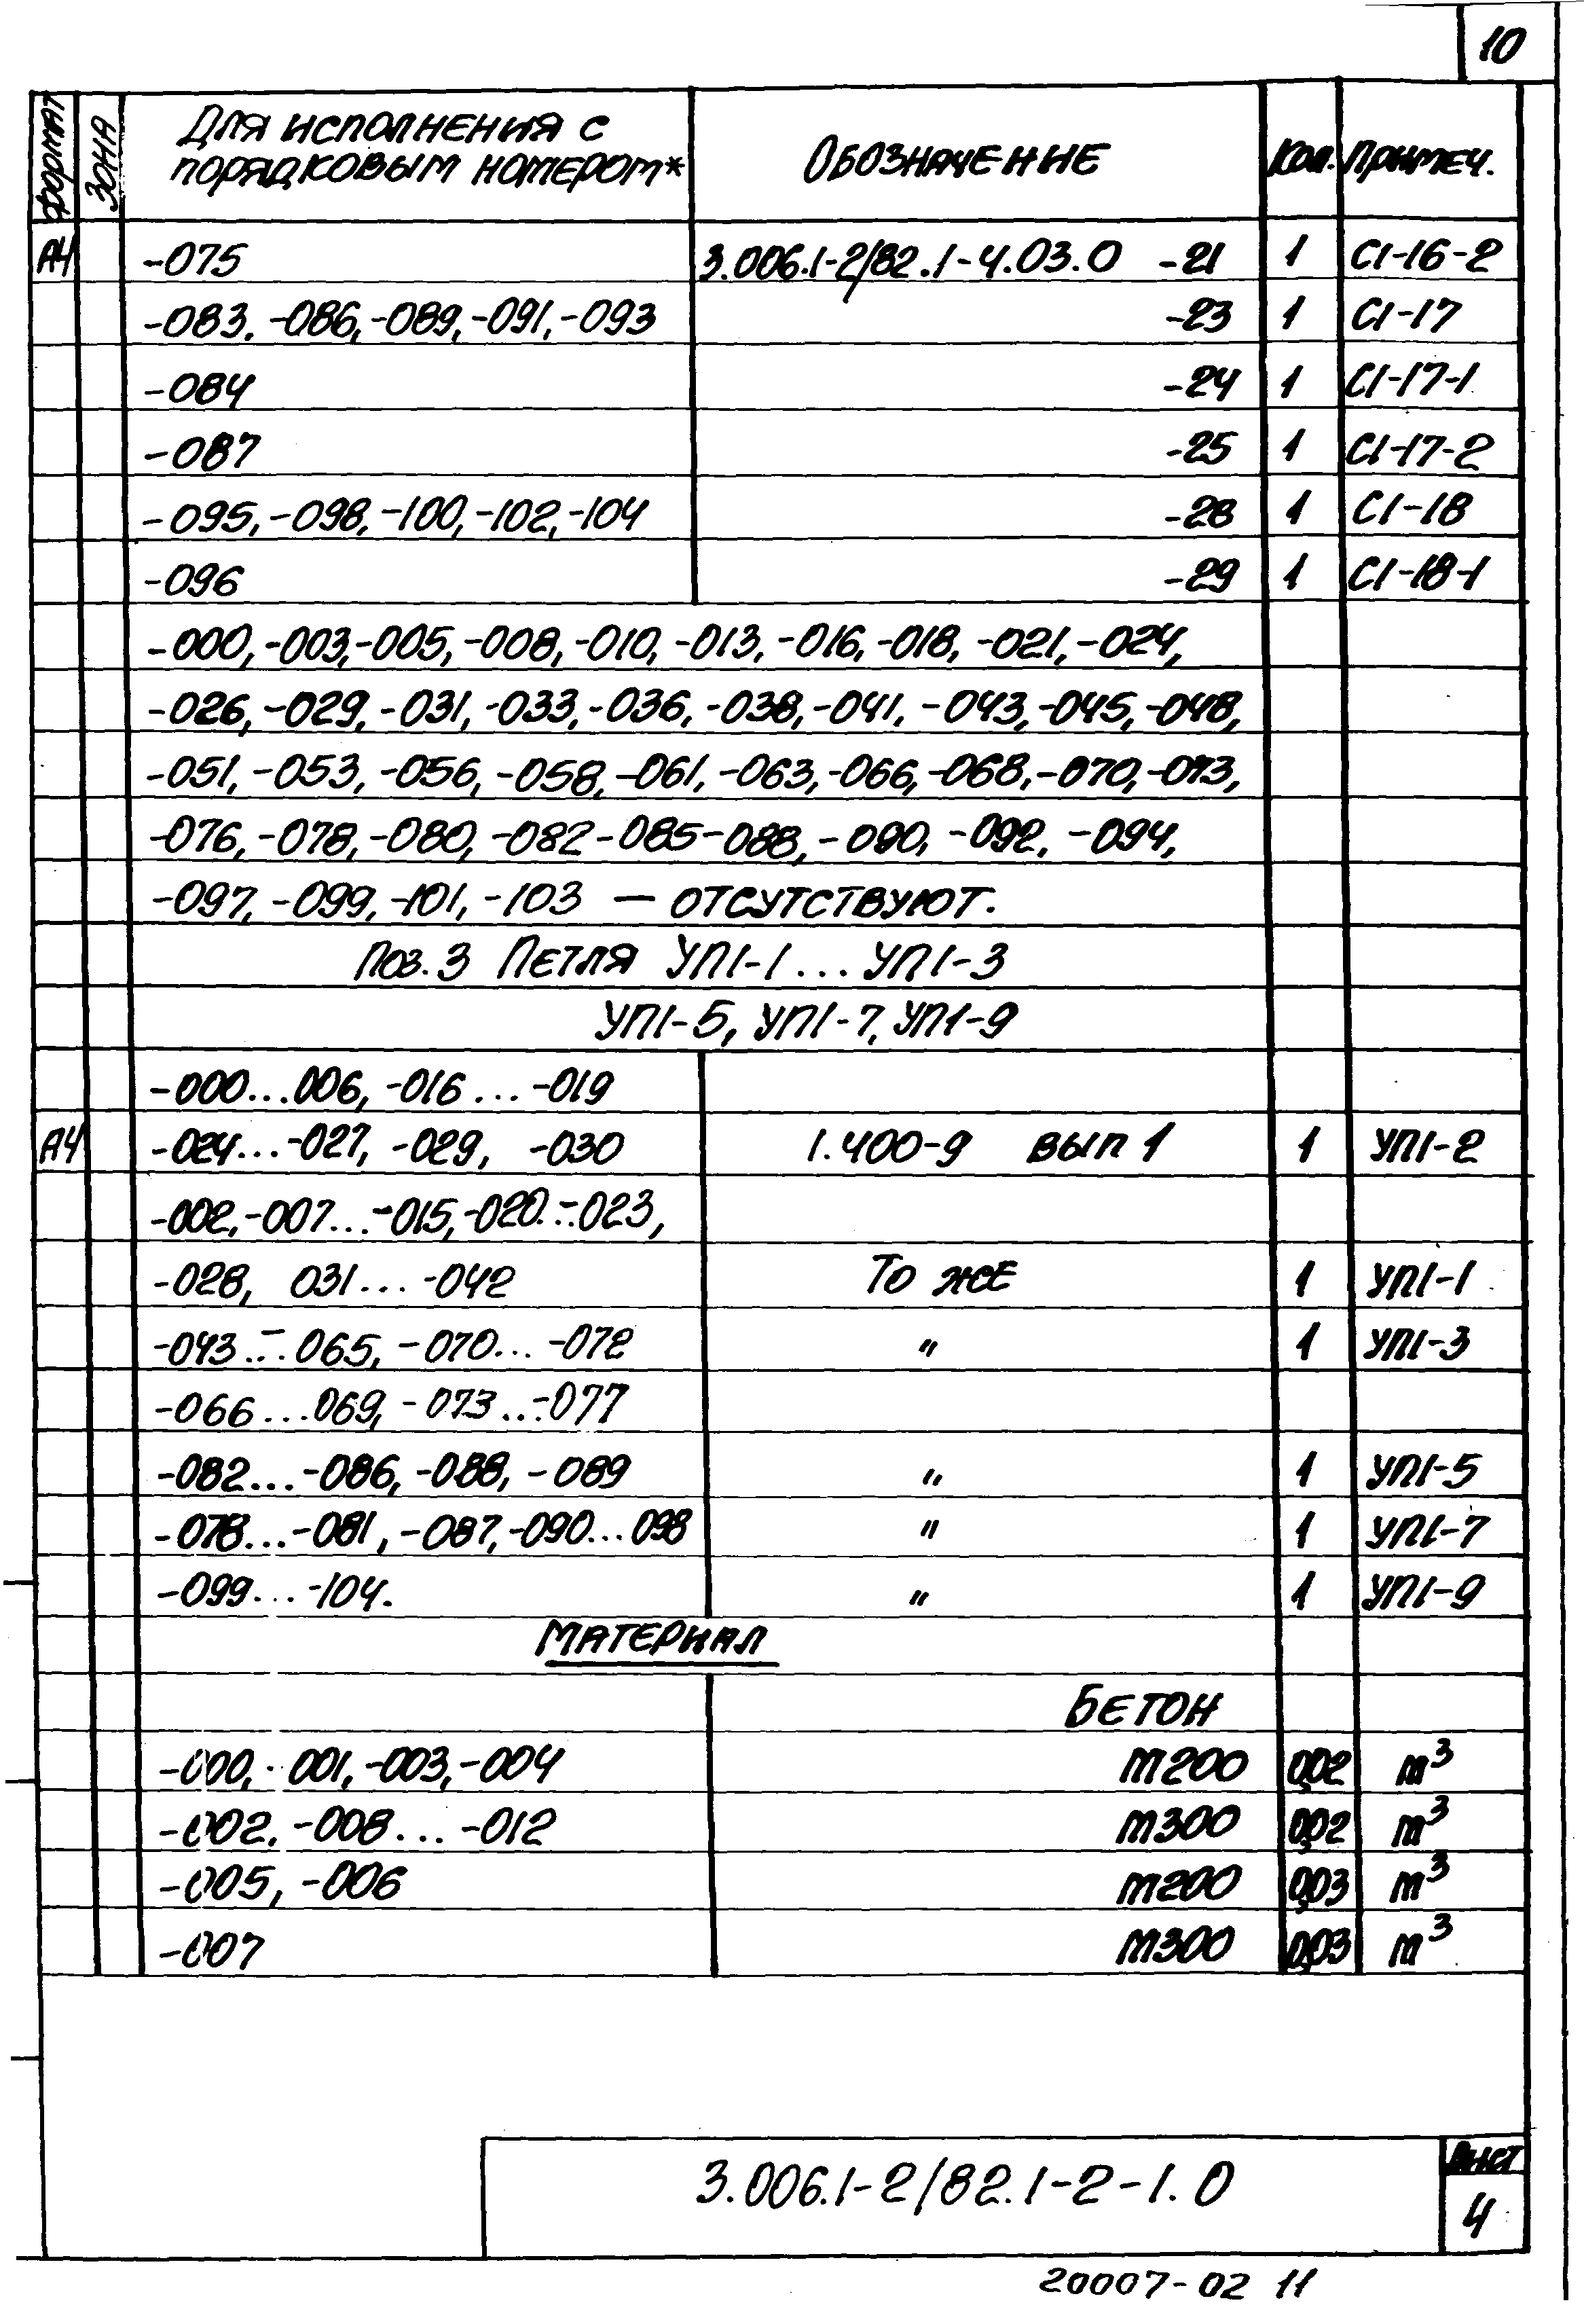 10
Формат Зона Для исполнения с порядковым номером* Обозначение Кол. Примеч.
А4 -075 3.006.1-2/82.1-4.03.0 -21 1 С1-16-2
-083, -086, -089, -091, -093 -23 1 С1-17
-084 -24 1 С1-17-1
-087 -25 1 С1-17-2
-095, -098, -100, -102, -104 -28 1 С1-18
-096 -29 1 С1-18-1
-000, -003, -005, -008, -010, -013, -016, -018, -021, -024,
-026, -029, -031, -033, -036, -038, -041, -043, -045, -048,
-051, -053, -056, -058, -061, -063, -066, -068, -070, -073,
-076, -078, -080, -082 -085 -088, -090, -092, -094,
-097, -099, -101, -103 — отсутствуют.
Поз. 3 Петля УП1-1 ... УП1-3
УП1-5, УП1-7, УП1-9
-000...006, -016 ... -019
А4 -024...-027, -029, -030 1.400-9 вып 1 1 УП1-2
-002, -007...-015, -020...-023,
-028, 031... -042 То же 1 УП1-1
-043...-065, -070... -072 " 1 УП1-3
-066...069, -073...-077
-082...-086, -088, -089 " 1 УП1-5
-078...-081, -087, -090...098 " 1 УП1-7
-099...-104. " 1 УП1-9
Материал
Бетон
-000, -001, -003, -004 М200 0,02 м³
-002, -008... -012 М300 0,02 м³
-005, -006 М200 0,03 м³
-007 М300 0,03 м³
3.006.1-2/82.1-2-1.0 Лист
4
20007-02 11